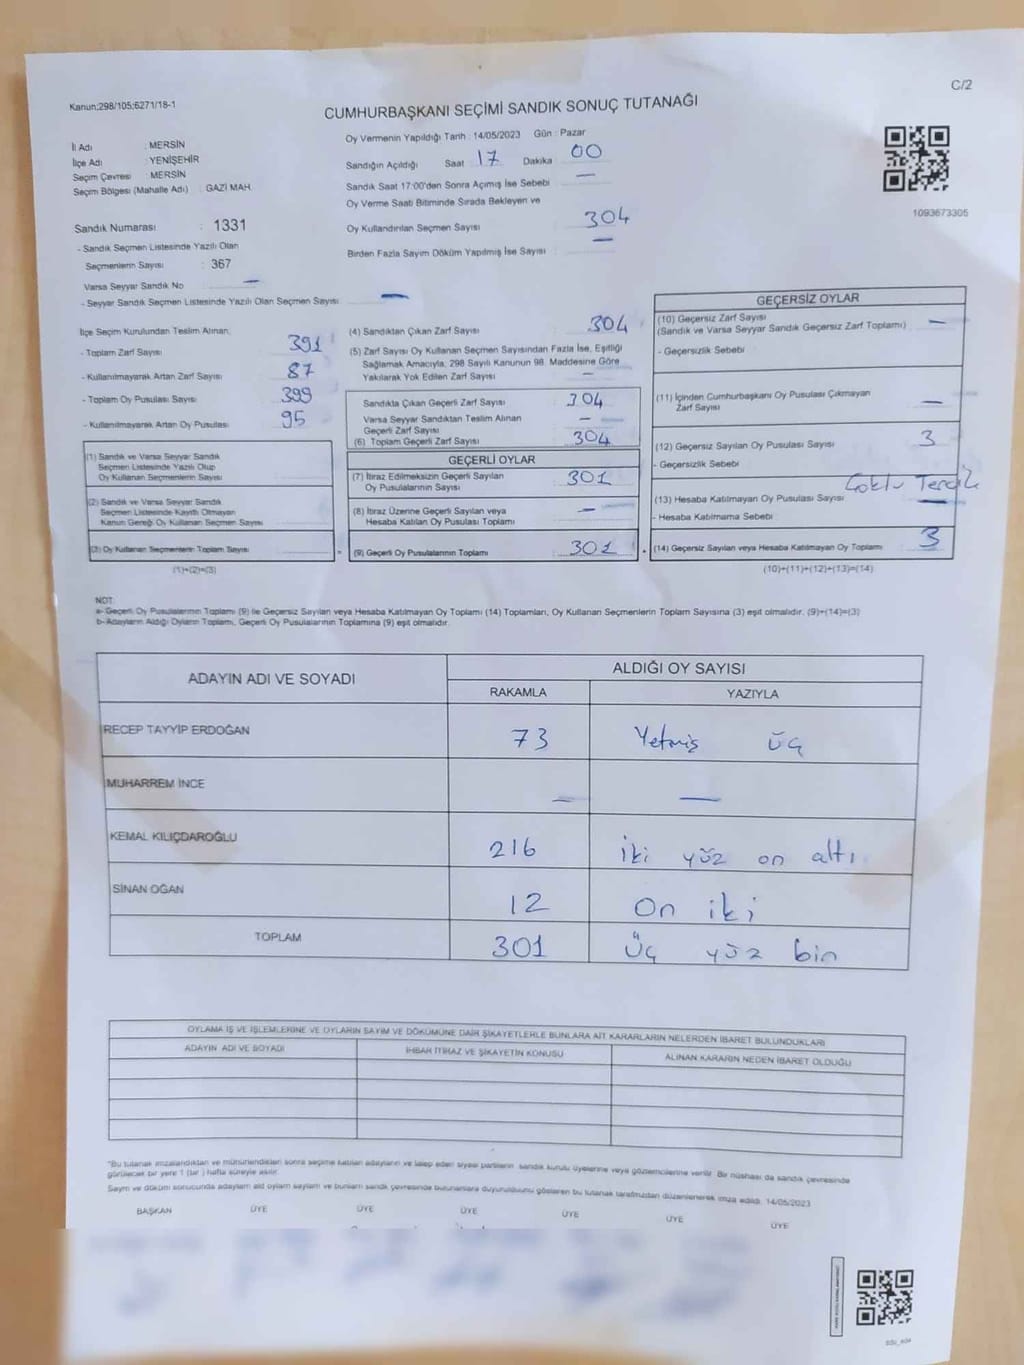 C/2
Kanun:298/105;6271/18-1
CUMHURBAŞKANI SEÇİMİ SANDIK SONUÇ TUTANAĞI
İl Adı : MERSİN
İlçe Adı : YENİŞEHİR
Seçim Çevresi : MERSİN
Seçim Bölgesi (Mahalle Adı) : GAZİ MAH.
Sandık Numarası : 1331
- Sandık Seçmen Listesinde Yazılı Olan
Seçmenlerin Sayısı : 367
Varsa Seyyar Sandık No —
- Seyyar Sandık Seçmen Listesinde Yazılı Olan Seçmen Sayısı —
Oy Vermenin Yapıldığı Tarih : 14/05/2023 Gün : Pazar
Sandığın Açıldığı Saat 17 Dakika 00
Sandık Saat 17:00'den Sonra Açımış İse Sebebi —
Oy Verme Saati Bitiminde Sırada Bekleyen ve
Oy Kullandırılan Seçmen Sayısı 304
Birden Fazla Sayım Döküm Yapılmış İse Sayısı —
1093673305
İlçe Seçim Kurulundan Teslim Alınan;
- Toplam Zarf Sayısı 391
- Kullanılmayarak Artan Zarf Sayısı 87
- Toplam Oy Pusulası Sayısı 399
- Kullanılmayarak Artan Oy Pusulası 95
(1) Sandık ve Varsa Seyyar Sandık
Seçmen Listesinde Yazılı Olup
Oy Kullanan Seçmenlerin Sayısı
(2) Sandık ve Varsa Seyyar Sandık
Seçmen Listesinde Kayıtlı Olmayan
Kanun Gereği Oy Kullanan Seçmen Sayısı
(3) Oy Kullanan Seçmenlerin Toplam Sayısı
(1)+(2)=(3)
(4) Sandıktan Çıkan Zarf Sayısı 304
(5) Zarf Sayısı Oy Kullanan Seçmen Sayısından Fazla İse, Eşitliği
Sağlamak Amacıyla, 298 Sayılı Kanunun 98. Maddesine Göre
Yakılarak Yok Edilen Zarf Sayısı —
Sandıkta Çıkan Geçerli Zarf Sayısı 304
Varsa Seyyar Sandıktan Teslim Alınan
Geçerli Zarf Sayısı —
(6) Toplam Geçerli Zarf Sayısı 304
GEÇERLİ OYLAR
(7) İtiraz Edilmeksizin Geçerli Sayılan
Oy Pusulalarının Sayısı 301
(8) İtiraz Üzerine Geçerli Sayılan veya
Hesaba Katılan Oy Pusulası Toplamı —
(9) Geçerli Oy Pusulalarının Toplamı 301
GEÇERSİZ OYLAR
(10) Geçersiz Zarf Sayısı
(Sandık ve Varsa Seyyar Sandık Geçersiz Zarf Toplamı) —
- Geçersizlik Sebebi
(11) İçinden Cumhurbaşkanı Oy Pusulası Çıkmayan
Zarf Sayısı —
(12) Geçersiz Sayılan Oy Pusulası Sayısı 3
- Geçersizlik Sebebi Çoklu Tercih
(13) Hesaba Katılmayan Oy Pusulası Sayısı —
- Hesaba Katılmama Sebebi
(14) Geçersiz Sayılan veya Hesaba Katılmayan Oy Toplamı 3
(10)+(11)+(12)+(13)=(14)
NOT:
a- Geçerli Oy Pusulalarının Toplamı (9) ile Geçersiz Sayılan veya Hesaba Katılmayan Oy Toplamı (14) Toplamları, Oy Kullanan Seçmenlerin Toplam Sayısına (3) eşit olmalıdır. (9)+(14)=(3)
b- Adayların Aldığı Oyların Toplamı, Geçerli Oy Pusulalarının Toplamına (9) eşit olmalıdır.
ADAYIN ADI VE SOYADI ALDIĞI OY SAYISI
RAKAMLA YAZIYLA
RECEP TAYYİP ERDOĞAN 73 Yetmiş üç
MUHARREM İNCE — —
KEMAL KILIÇDAROĞLU 216 iki yüz on altı
SİNAN OĞAN 12 On iki
TOPLAM 301 Üç yüz bin
OYLAMA İŞ VE İŞLEMLERİNE VE OYLARIN SAYIM VE DÖKÜMÜNE DAİR ŞİKAYETLERLE BUNLARA AİT KARARLARIN NELERDEN İBARET BULUNDUKLARI
ADAYIN ADI VE SOYADI İHBAR İTİRAZ VE ŞİKAYETİN KONUSU ALINAN KARARIN NEDEN İBARET OLDUĞU
*Bu tutanak imzalandıktan ve mühürlendikten sonra seçime katılan adayların ve talep eden siyasi partilerin sandık kurulu üyelerine veya gözlemcilerine verilir. Bir nüshası da sandık çevresinde
görülecek bir yere 1 (bir) hafta süreyle asılır.
Sayım ve döküm sonucunda adayların
bu tutanak tarafımızdan düzenlenerek imza edildi. 14/05/2023
BAŞKAN ÜYE ÜYE ÜYE ÜYE ÜYE ÜYE